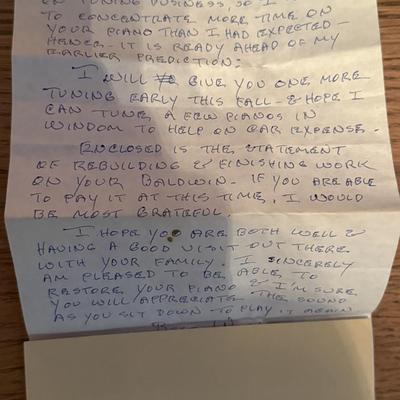 ON TUNING BUSINESS, SO I
TO CONCENTRATE MORE TIME ON
YOUR PIANO THAN I HAD EXPECTED -
HENCE - IT IS READY AHEAD OF MY
EARLIER PREDICTION.
I WILL GIVE YOU ONE MORE
TUNING EARLY THIS FALL - & HOPE I
CAN TUNE A FEW PIANOS IN
WINDOM TO HELP ON CAR EXPENSE.
ENCLOSED IS THE STATEMENT
OF REBUILDING & FINISHING WORK
ON YOUR BALDWIN - IF YOU ARE ABLE
TO PAY IT AT THIS TIME, I WOULD
BE MOST GRATEFUL.
I HOPE YOU ARE BOTH WELL &
HAVING A GOOD VISIT OUT THERE
WITH YOUR FAMILY. I SINCERELY
AM PLEASED TO BE ABLE TO
RESTORE YOUR PIANO & I'M SURE
YOU WILL APPRECIATE THE SOUND
AS YOU SIT DOWN TO PLAY IT AGAIN